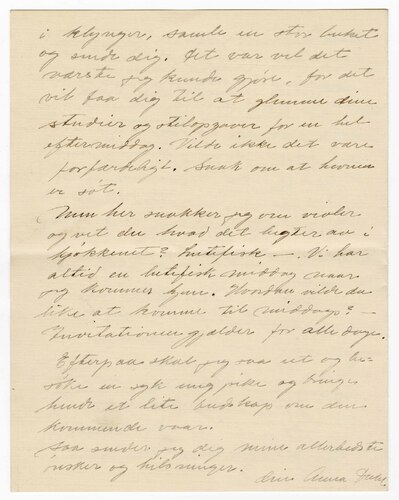 i klynger, samle en stor buket
og sende dig. Det var vel det
værste jeg kunde gjøre, for det
vil faa dig til at glemme dine
studier og stilopgaver for en hel
eftermiddag. Vilde ikke det være
forfærdeligt. Snak om at hevnen
er søt.
Men her snakker jeg om violer
og vet du hvad det lugter av i
kjøkkenet? Lutefisk —. Vi har
altid en lutefisk middag naar
jeg kommer hjem. Hvordan vilde du
like at komme til middags? —
Invitationen gjælder for alle dage.
Efterpaa skal jeg saa ut og be-
søke en syk ung pike og bringe
hende et lite budskap om den
kommende vaar.
Saa sender jeg dig mine allerbedste
ønsker og hilsninger.
din Anna